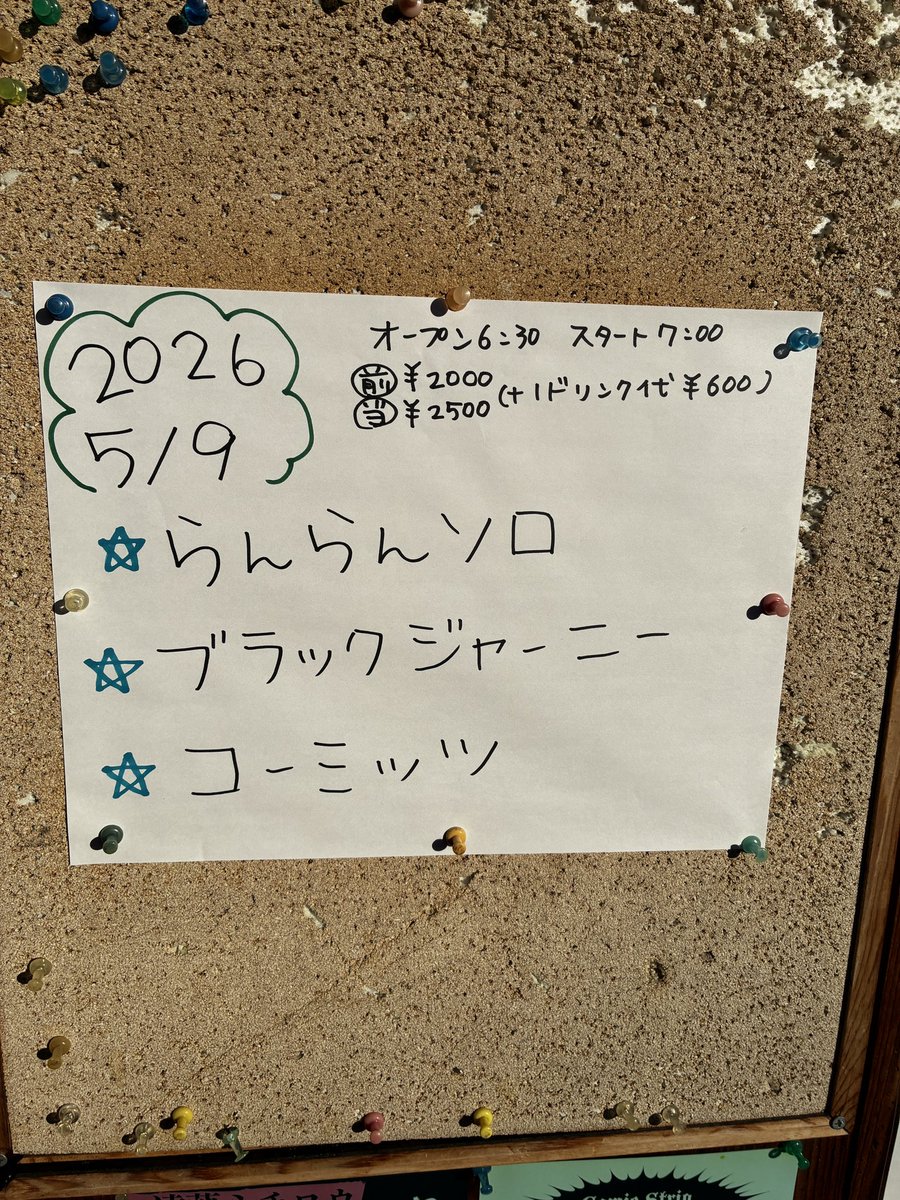 2026
5/9
オープン6:30 スタート7:00
前 ¥2000
当 ¥2500
(+1ドリンク代 ¥600)
らんらんソロ
ブラックジャーニー
コーミッツ
Comic Strip